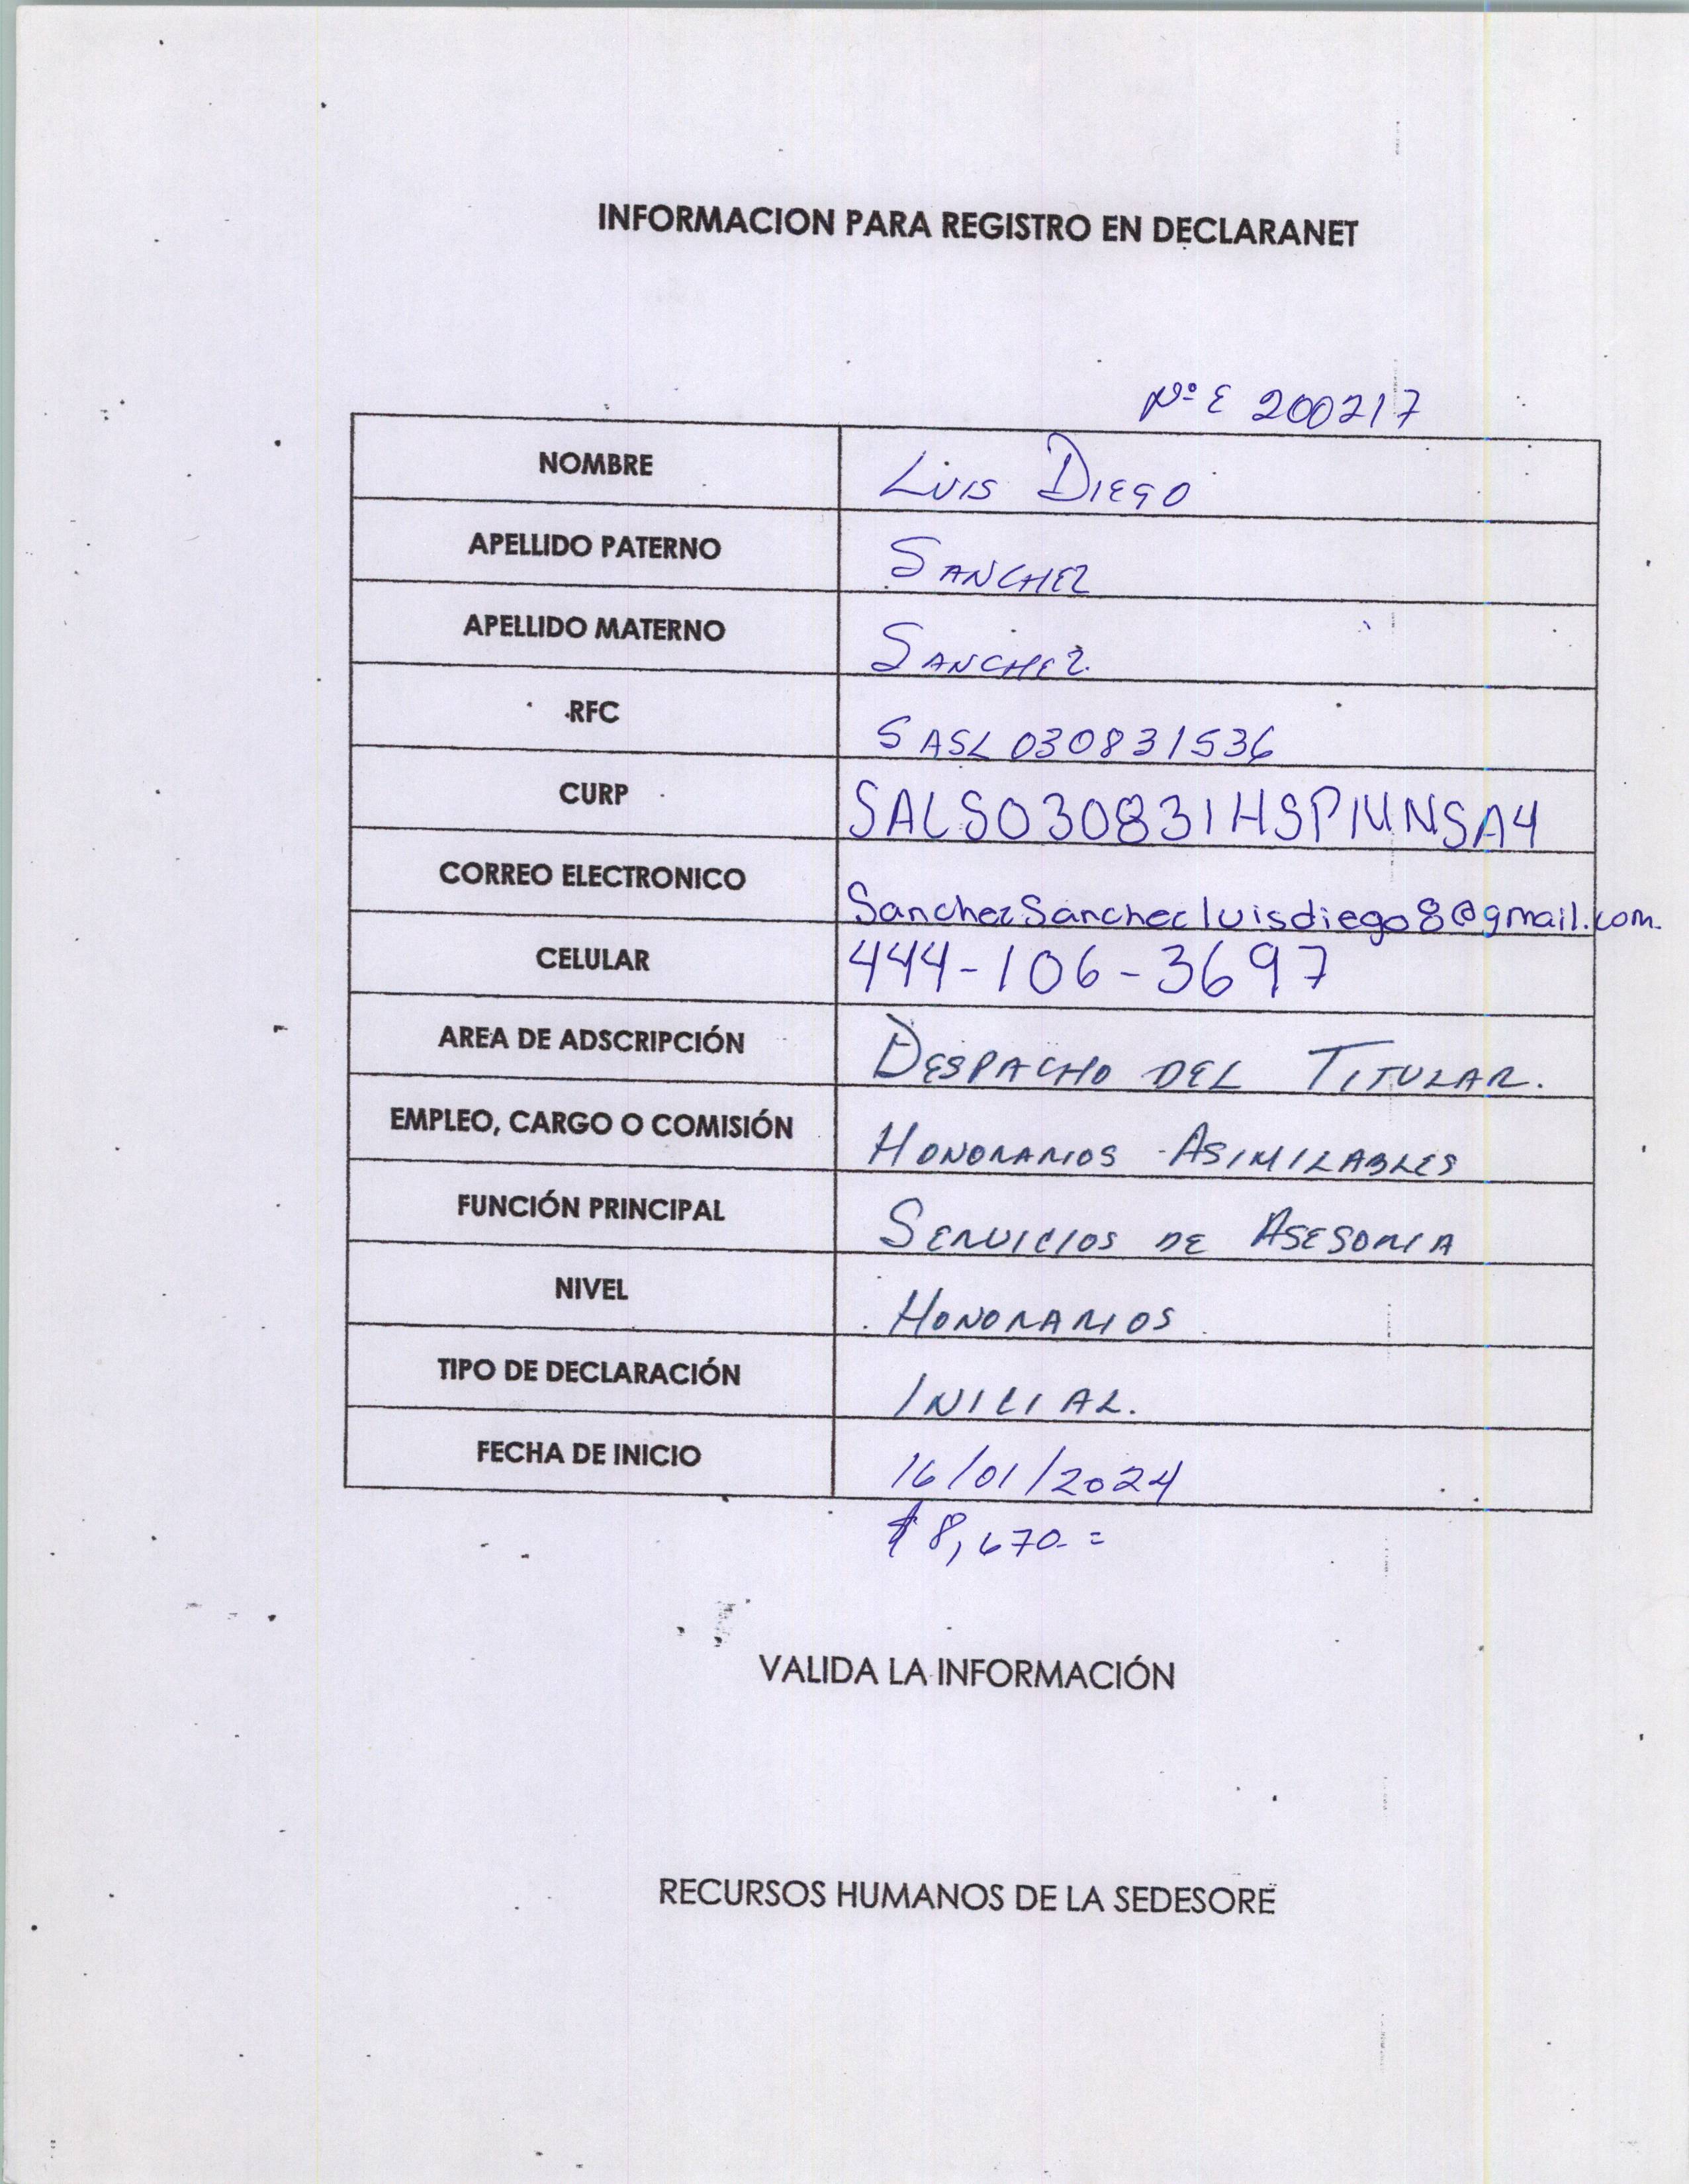 INFORMACION PARA REGISTRO EN DECLARANET
Nº E 200217
NOMBRE LUIS DIEGO
APELLIDO PATERNO SANCHEZ
APELLIDO MATERNO SANCHEZ.
RFC SASL030831536
CURP SALS030831HSPMNSA4
CORREO ELECTRONICO SanchezSanchezluisdiego8@gmail.com.
CELULAR 444-106-3697
AREA DE ADSCRIPCIÓN DESPACHO DEL TITULAR.
EMPLEO, CARGO O COMISIÓN HONORARIOS ASIMILABLES
FUNCIÓN PRINCIPAL SERVICIOS DE ASESORIA
NIVEL HONORARIOS
TIPO DE DECLARACIÓN INICIAL.
FECHA DE INICIO 16/01/2024
$8,670.=
VALIDA LA INFORMACIÓN
RECURSOS HUMANOS DE LA SEDESORE